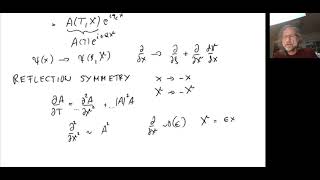 A(T, X) e^{iq_c x}
A(T) e^{iQX}
ψ(x) → ψ(x, X) ∂/∂x → ∂/∂x + ∂/∂X ∂X/∂x
REFLECTION SYMMETRY x → -x
X → -X
∂A/∂T = ... ∂²A/∂X² + ... |A|² A
∂²/∂X² ~ A² ∂/∂X ~ O(ε) X = εx